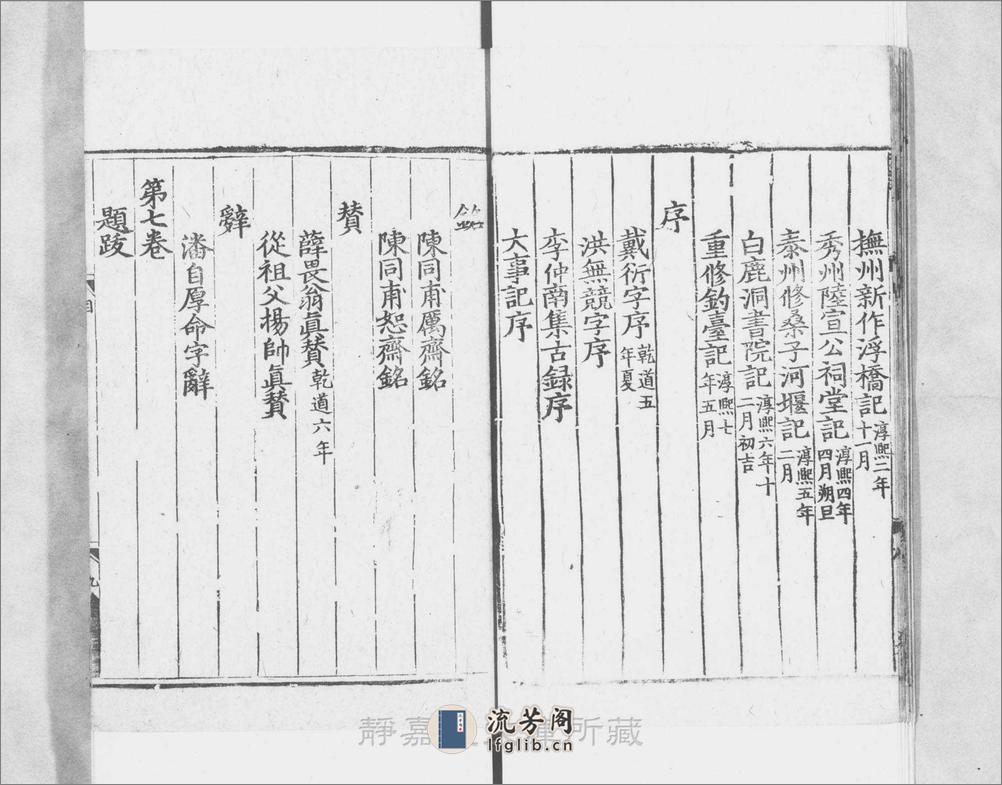 撫州新作浮橋記淳熙二年十一月
秀州陸宣公祠堂記淳熙四年四月朔旦
泰州修桑子河堰記淳熙五年二月
白鹿洞書院記淳熙六年十二月初吉
重修釣臺記淳熙七年五月
序
戴衍字序乾道五年夏
洪無競字序
李仲南集古録序
大事記序
銘
陳同甫厲齋銘
陳同甫恕齋銘
賛
薛畏翁眞賛乾道六年
從祖父揚帥眞賛
辭
潘自厚命字辭
第七卷
題跋
九
靜嘉 所藏
流芳阁
lfglib.cn